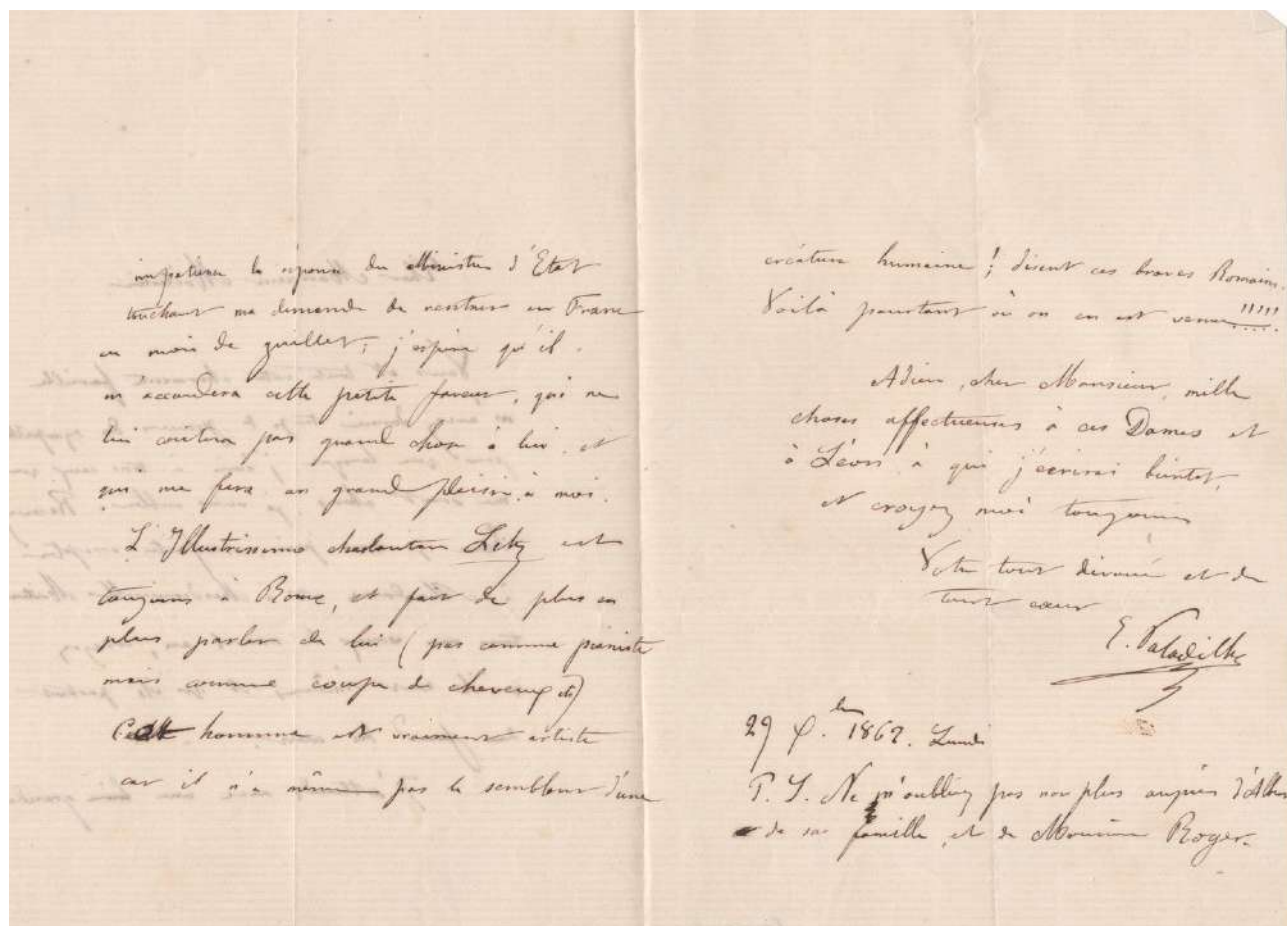 impatience la réponse du Ministre d'Etat
touchant ma demande de rentrer en France
au mois de juillet; j'espère qu'il
m'accordera cette petite faveur, qui ne
lui coutera pas grand chose à lui, et
qui me fera un grand plaisir à moi.
L'Illustrissimo charlatan Litz est
toujours à Rome, et fait de plus en
plus parler de lui (pas comme pianiste
mais comme coupe de cheveux etc)
Cet homme est vraiment artiste
car il n'a même pas le semblant d'une
créature humaine! disent ces braves Romains.
Voilà pourtant où on en est venu!!!!!
Adieu, cher Monsieur, mille
choses affectueuses à ces Dames et
à Léon à qui j'écrirai bientot,
et croyez moi toujours
Votre tout dévoué et de
tout cœur
E. Paladilhe
29 bre 1862. Lundi
P. S. Ne m'oubliez pas non plus auprès
de sa famille, et de Monsieur Roger.